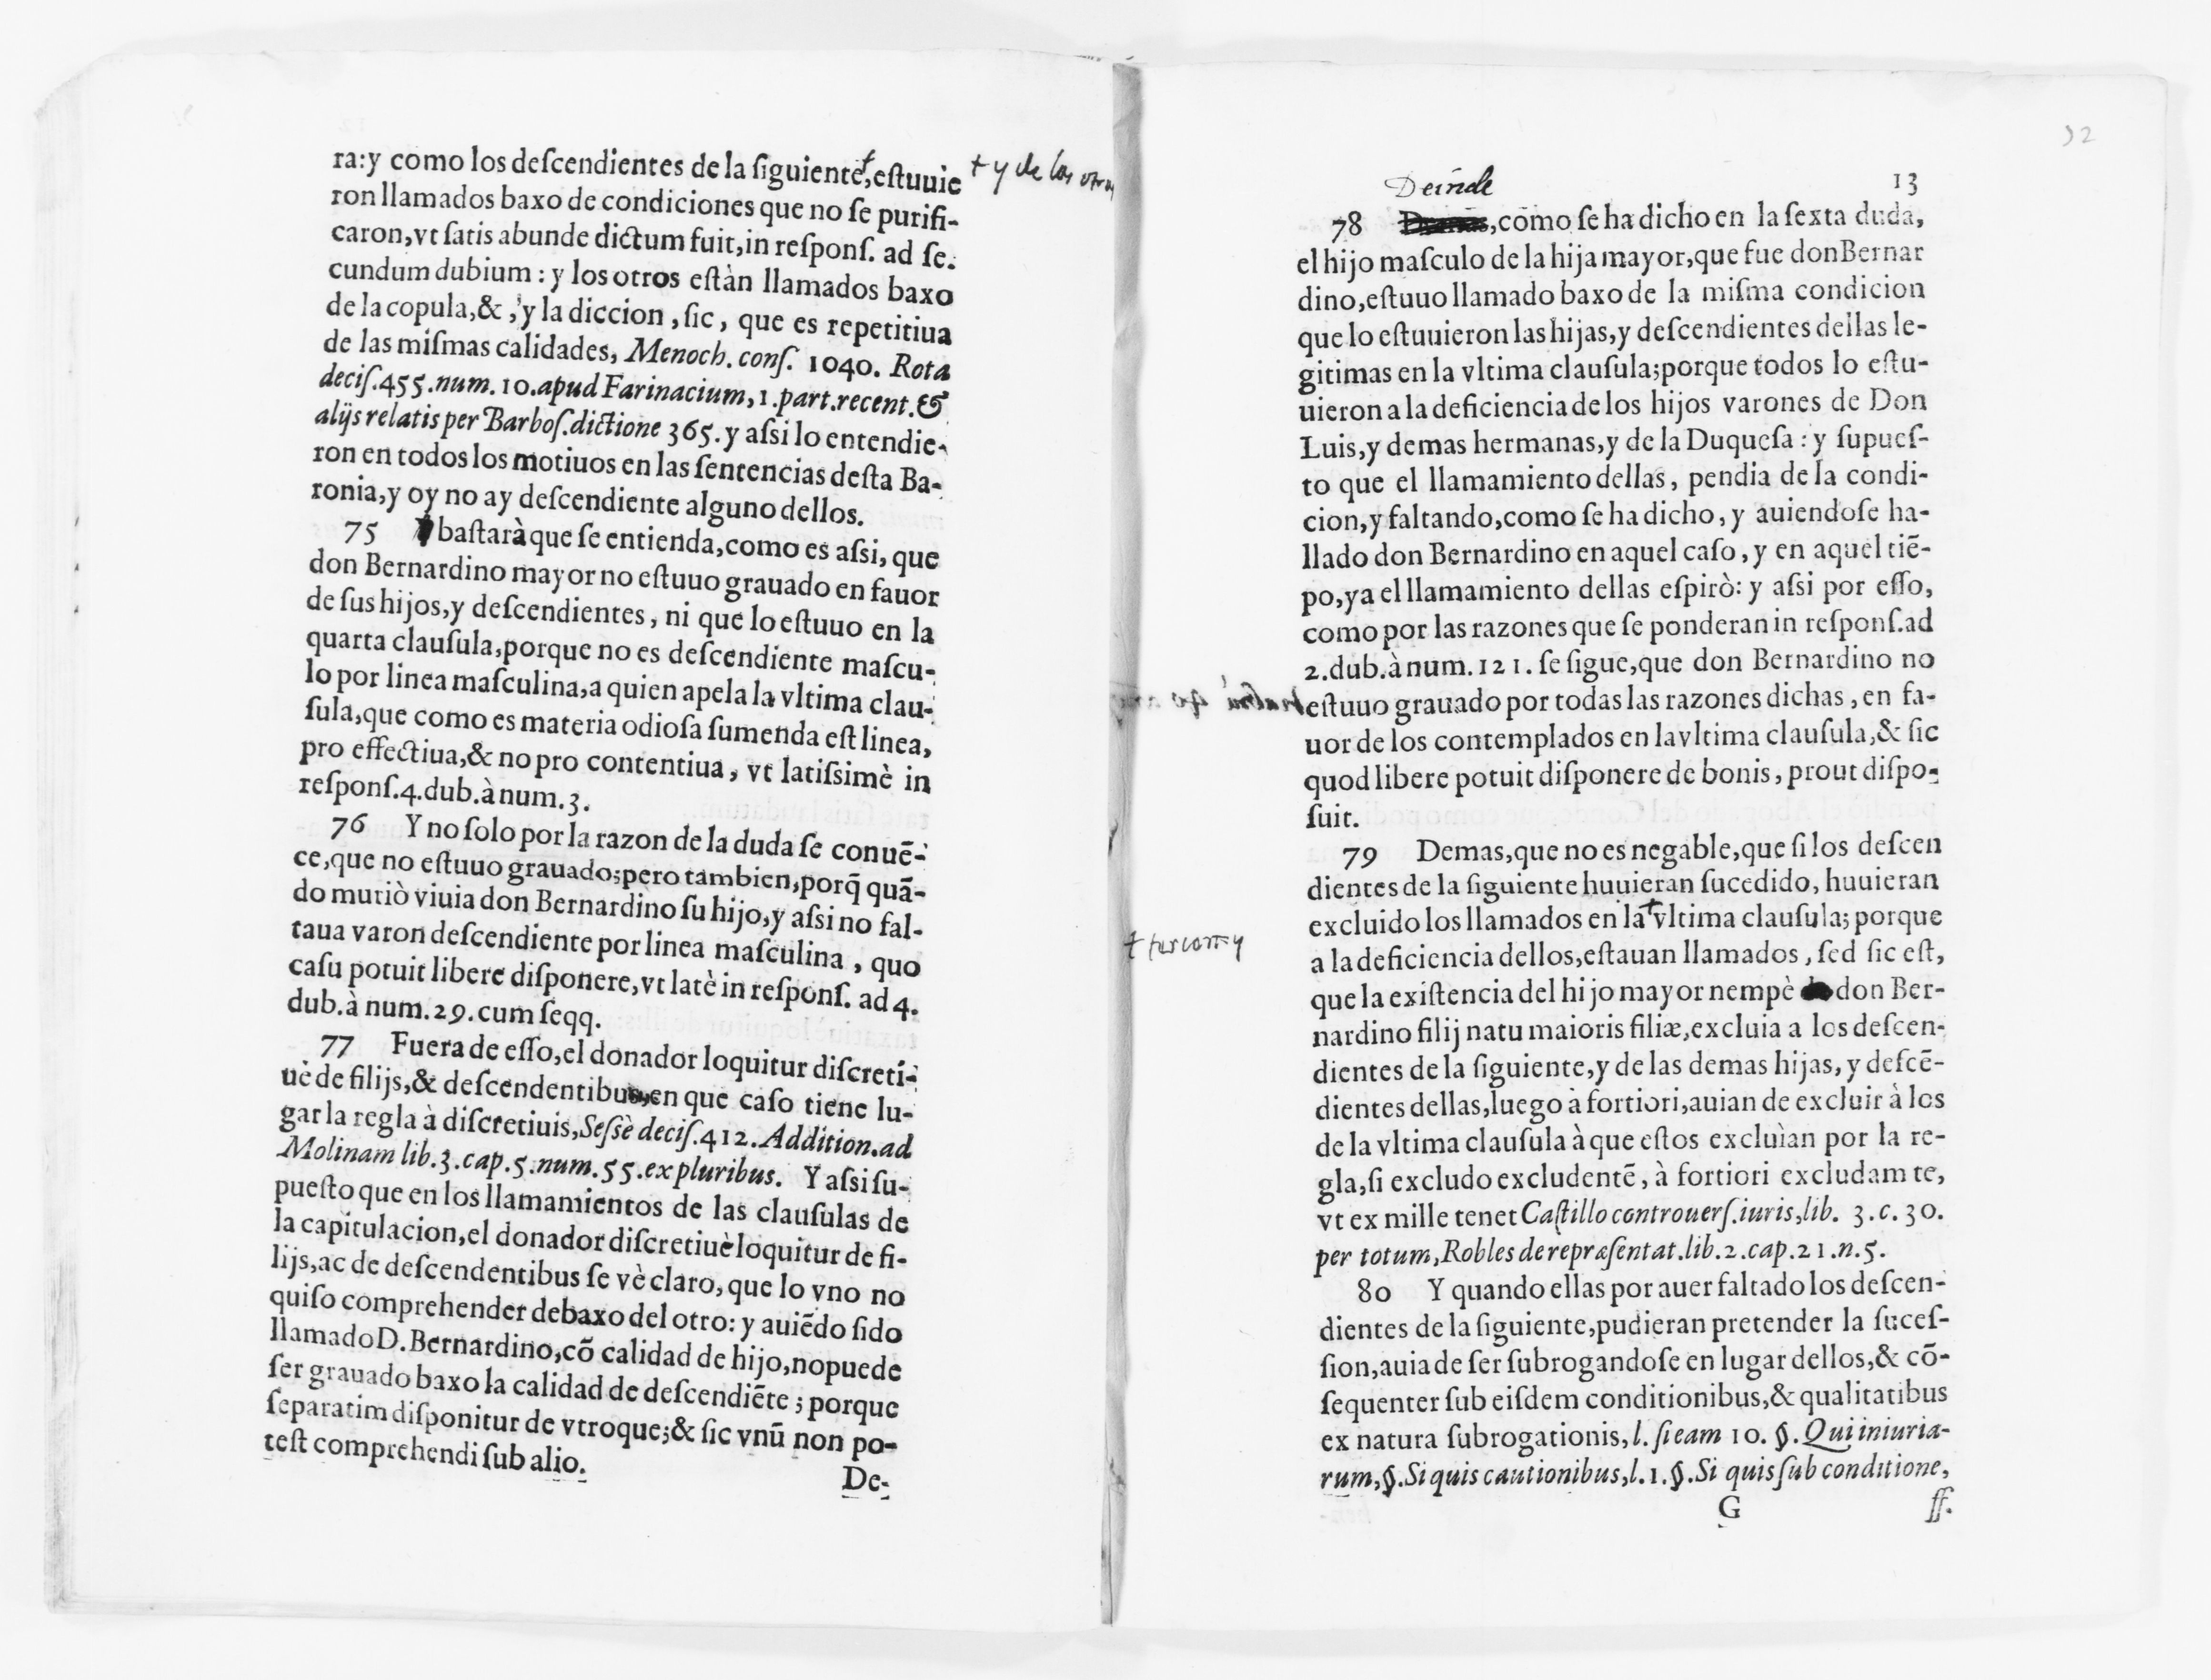 ra:y como los deſcendientes de la ſiguiente,eſtuuie
+ y de los otros
ron llamados baxo de condiciones que no ſe purifi-
caron,vt ſatis abunde dictum fuit,in reſponſ. ad ſe.
cundum dubium : y los otros eſtàn llamados baxo
de la copula,&, y la diccion , ſic, que es repetitiua
de las miſmas calidades, Menoch. conſ. 1040. Rota
deciſ.455.num.10.apud Farinacium,1.part.recent.&
alijs relatis per Barboſ.dictione 365. y aſsi lo entendie-
ron en todos los motiuos en las ſentencias deſta Ba-
ronia,y oy no ay deſcendiente alguno dellos.
75 Y baſtarà que ſe entienda,como es aſsi, que
don Bernardino mayor no eſtuuo grauado en fauor
de ſus hijos,y deſcendientes, ni que lo eſtuuo en la
quarta clauſula,porque no es deſcendiente maſcu-
lo por linea maſculina,a quien apela la vltima clau-
ſula,que como es materia odioſa ſumenda eſt linea,
pro effectiua,& no pro contentiua, vt latiſsimè in
reſponſ.4.dub.à num.3.
76 Y no ſolo por la razon de la duda ſe conuẽ-
ce,que no eſtuuo grauado;pero tambien,porq̃ quã-
do muriò viuia don Bernardino ſu hijo,y aſsi no fal-
taua varon deſcendiente por linea maſculina , quo
caſu potuit libere diſponere,vt latè in reſponſ. ad 4.
dub.à num.29.cum ſeqq.
77 Fuera de eſſo,el donador loquitur diſcreti-
uè de filijs,& deſcendentibus,en que caſo tiene lu-
gar la regla à diſcretiuis,Seſsè deciſ.412.Addition.ad
Molinam lib.3.cap.5.num.55.ex pluribus. Y aſsi ſu-
pueſto que en los llamamientos de las clauſulas de
la capitulacion,el donador diſcretiuè loquitur de fi-
lijs,ac de deſcendentibus ſe vè claro,que lo vno no
quiſo comprehender debaxo del otro: y auiẽdo ſido
llamado D. Bernardino,cõ calidad de hijo,no puede
ſer grauado baxo la calidad de deſcendiẽte ; porque
ſeparatim diſponitur de vtroque;& ſic vnũ non po-
teſt comprehendi ſub alio.
De-
32
13
Deinde
78 ,como ſe ha dicho en la ſexta duda,
el hijo maſculo de la hija mayor,que fue don Bernar
dino,eſtuuo llamado baxo de la miſma condicion
que lo eſtuuieron las hijas,y deſcendientes dellas le-
gitimas en la vltima clauſula;porque todos lo eſtu-
uieron a la deficiencia de los hijos varones de Don
Luis,y demas hermanas,y de la Duqueſa : y ſupueſ-
to que el llamamiento dellas, pendia de la condi-
cion,y faltando,como ſe ha dicho, y auiendoſe ha-
llado don Bernardino en aquel caſo, y en aquel tiẽ-
po,ya el llamamiento dellas eſpirò: y aſsi por eſſo,
como por las razones que ſe ponderan in reſponſ.ad
2.dub.à num. 121. ſe ſigue,que don Bernardino no
eſtuuo grauado por todas las razones dichas, en fa-
uor de los contemplados en la vltima clauſula,& ſic
quod libere potuit diſponere de bonis, prout diſpo-
ſuit.
79 Demas,que no es negable,que ſi los deſcen
dientes de la ſiguiente huuieran ſucedido, huuieran
excluido los llamados en la + vltima clauſula; porque
a la deficiencia dellos,eſtauan llamados , ſed ſic eſt,
que la exiſtencia del hijo mayor nempè don Ber-
nardino filij natu maioris filiæ,excluia a los deſcen-
dientes de la ſiguiente,y de las demas hijas, y deſcẽ-
dientes dellas,luego à fortiori,auian de excluir à los
de la vltima clauſula à que eſtos excluìan por la re-
gla,ſi excludo excludentẽ, à fortiori excludam te,
vt ex mille tenet Caſtillo controuerſ.iuris,lib. 3.c.30.
per totum,Robles de repræſentat.lib.2.cap.21.n.5.
80 Y quando ellas por auer faltado los deſcen-
dientes de la ſiguiente,pudieran pretender la ſuceſ-
ſion,auia de ſer ſubrogandoſe en lugar dellos,& cõ-
ſequenter ſub eiſdem conditionibus,& qualitatibus
ex natura ſubrogationis,l. ſi eam 10. §. Qui iniuria-
rum,§.Si quis cautionibus,l.1.§.Si quis ſub conditione,
G
ff.